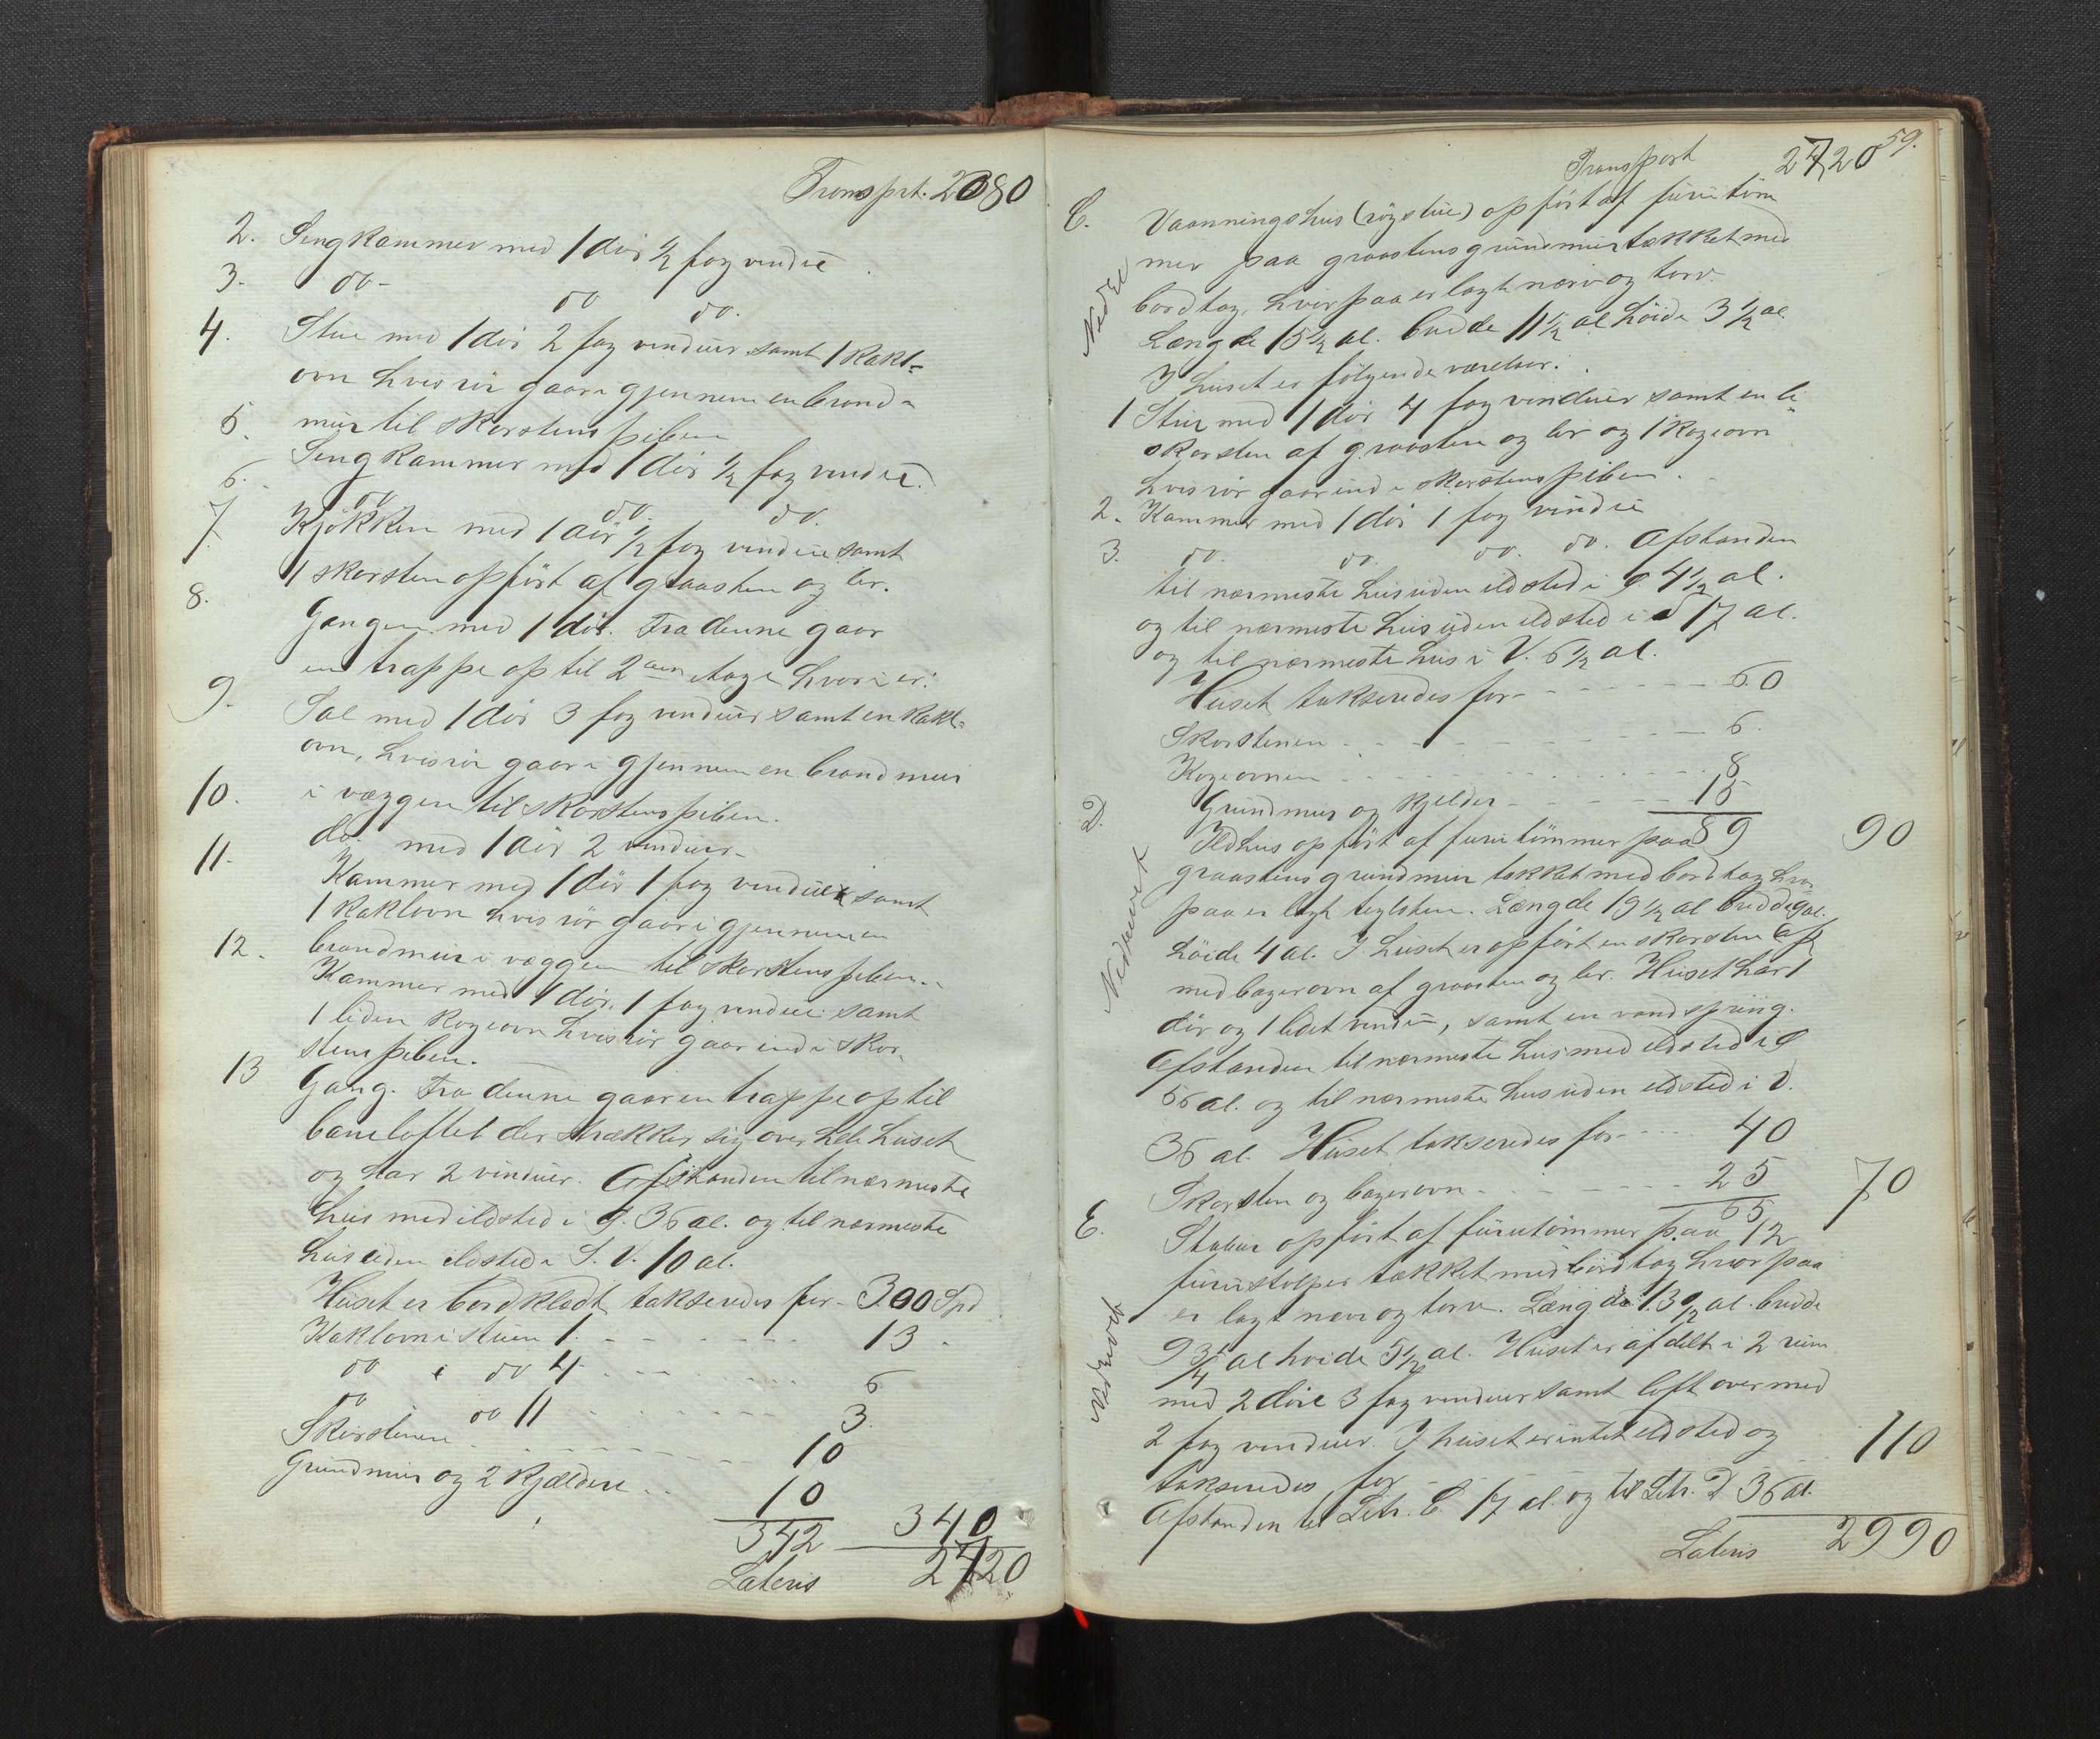 Transprt. 2080
2. Sengkammer med 1 dör 1/2 fag vindue
3. do- do do.
4. Stue med 1 dör 2 fag vinduer samt 1 kakl-
ovn hvis rör gaar i gjennem en brand-
mur til skorstenspiben
5. Sengkammer med 1 dör 1/2 fag vindue.
6. do do. do.
7. Kjökken med 1 dör 1/2 fag vindue samt
1 skorsten opfört af graasten og ler.
8. Gangen med 1 dör. Fra denne gaar
en trappe op til 2den etage hvori er:
9. Sal med 1 dör 3 fag vinduer samt en kakl-
ovn, hvis rör gaar i gjennem en brandmur
i væggen til skorstenspiben.
10. do. med 1 dör 2 vinduer-
11. Kammer med 1 dör 1 fag vindue samt
1 kaklovn hvis rör gaar i gjennem en
brandmur i væggen til skorstenspiben..
12. Kammer med 1 dör, 1 fag vindue samt
1 liden kogeovn hvis rör gaar ind i skor-
stenspiben.
13 Gang. Fra denne gaar en trappe op til
baneloftet der strækker sig over hele huset
og har 2 vinduer. Afstanden til nærmeste
hus med ildsted i Ø. 36 al. og til nærmeste
hus uden ildsted i S. V. 10 al.
Huset er bordklædt takseredes for - 300 Spd
Kaklovn i stuen 1. 13 -
do i do 4 6
do do 11 3.
Skorstenen 10
Grundmur og 2 kjældere 10
342 340
Lateris 2420
59.
Transport 2420
C. Vaanningshus (rögstue) opfört af furutöm
mer paa graastens grundmur tækket med
bordtag, hvorpaa er lagt næver og torv.
Længde 15 1/2 al. bredde 11 1/2 al höide 3 1/2 al.
I huset er fölgende værelser.
1 Stue med 1 dör 4 fag vinduer samt en
skorsten af graasten og ler og 1 kogeovn
hvis rör gaar ind i skorstenspiben.
2. Kammer med 1 dör 1 fag vindue
3. do. do. do. do. Afstanden
til nærmeste hus uden ildsted i Ø. 4 1/2 al.
og til nærmeste hus uden ildsted i S 17 al.
og til nærmeste hus i V. 6 1/2 al.
Huset takseredes for 60
Skorstenen 6.
Kogeovnen 8
Grundmur og kjelder 15
89 90
D. Ildhus opfört af furutömmer paa
graastens grundmur tækket med bordtag hvor-
paa er lagt teglsten. Længde 19 1/2 al bredde 9 al.
höide 4 al. I huset er opfört en skorsten
med bagerovn af graasten og ler. Huset har 1
dör og 1 lidet vindue, samt en vandspring.
Afstanden til nærmeste hus med ildsted i Ø
56 al. og til nærmeste hus uden ildsted i V.
36 al. Huset takseredes for 40
Skorsten og bagerovn 25
65 70
E. Stabur opfört af furutömmer paa 12
furustolper tækket med bordtag hvorpaa
er lagt næver og torv. Længde 13 1/2 al. bredde
9 3/4 al höide 5 1/2 al. Huset er afdelt i 2 rum
med 2 döre 3 fag vinduer samt loft over med
2 fag vinduer. I huset er intet ildsted og
takseredes for 110
Afstanden til Litr. C 17 al. og til Litr. D 36 al.
Lateris 2990
Nedrevet
Nedrevet